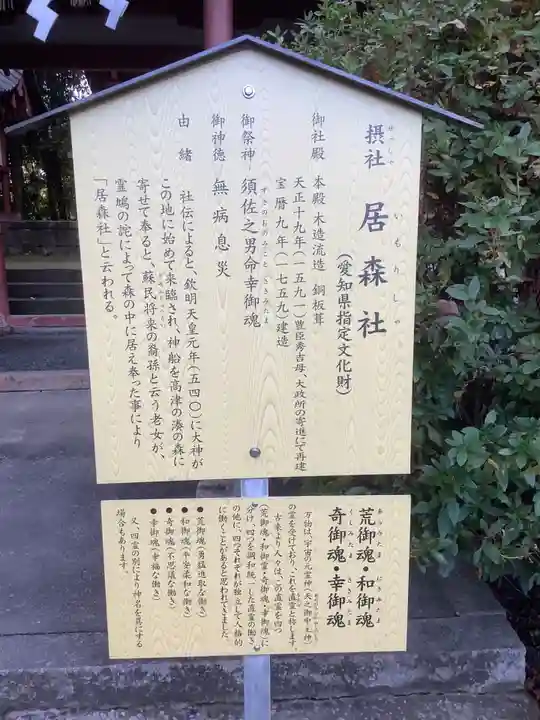 摂社 居森社
せっしゃ いもりしゃ
(愛知県指定文化財)
御社殿 本殿 木造流造 銅板葺
天正十九年(一五九一)豊臣秀吉母、大政所の寄進にて再建
宝暦九年(一七五九)建造
御祭神 須佐之男命幸御魂
すさのおのみこと さきみたま
御神徳 無病息災
由緒 社伝によると、欽明天皇元年(五四〇)に大神が
この地に始めて来臨され、神船を高津の湊の森に
寄せて奉ると、蘇民将来の裔孫と云う老女が、
霊鳩の託によって森の中に居え奉った事により
「居森社」と云われる。
荒御魂・和御魂
あらみたま にぎみたま
奇御魂・幸御魂
くしみたま さきみたま
万物は、宇宙の元霊神(天之御中主神)
の霊を受けており、これを直霊と称します。
古来より人々は、この直霊を四つ
(荒御魂・和御霊・奇御魂・幸御魂)に
分け、四つを調和統一した直霊の働き
の他に、四つそれぞれが独立して人格的
に働くことがあると思われてきました。
●荒御魂(勇猛進取な働き)
●和御魂(平安柔和な働き)
●奇御魂(不思議な働き)
●幸御魂(幸福な働き)
又、四霊の別により神名を異にする
場合もあります。